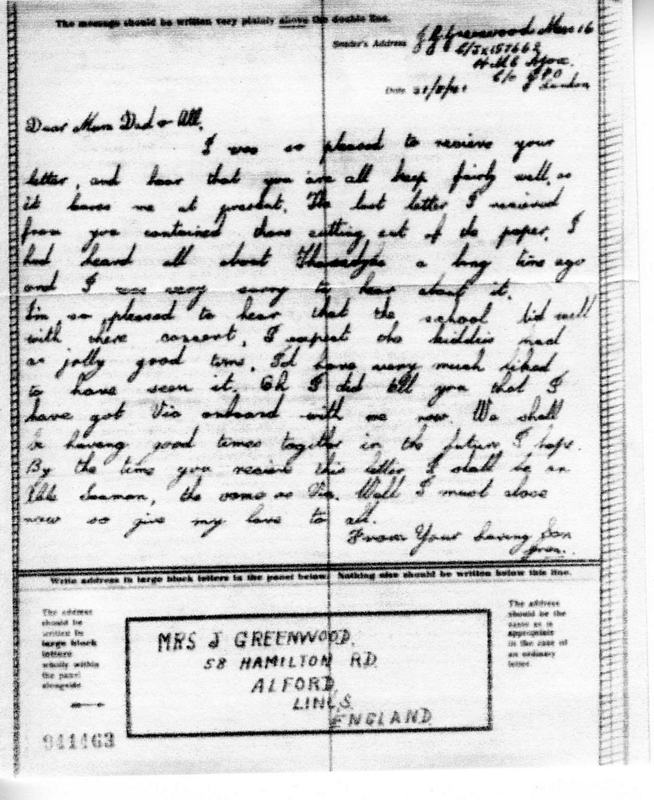 The message should be written very plainly above the double line.
Sender's Address J G Greenwood Mess 16
C/JX157662
H.M.S Ajax.
C/o G.P.O
London
Date 21/8/41
Dear Mum Dad & All,
I was so pleased to recieve your
letter, and hear that you are all keep fairly well, as
it leaves me at present. The last letter I recieved
from you contained those cutting out of the paper. I
had heard all about a long time ago
and I was very sorry to hear about it.
I'm so pleased to hear that the school did well
with there concert, I expect the kiddies had
a jolly good time, I'd have very much liked
to have seen it. Oh I did tell you that I
have got Vic onboard with me now. We shall
be having good times together in the future I hope.
By the time you recieve this letter I shall be an
Able Seaman, the same as Vic. Well I must close
now so give my love to all.
From Your Loving Son
Write address in large block letters in the panel below. Nothing else should be written below this line.
The address
should be
written in
large block
letters
wholly within
the panel
alongside
MRS J GREENWOOD,
58 HAMILTON RD
ALFORD,
LINCS.
ENGLAND
The address
should be the
same as is
appropriate
in the case of
an ordinary
letter.
941463